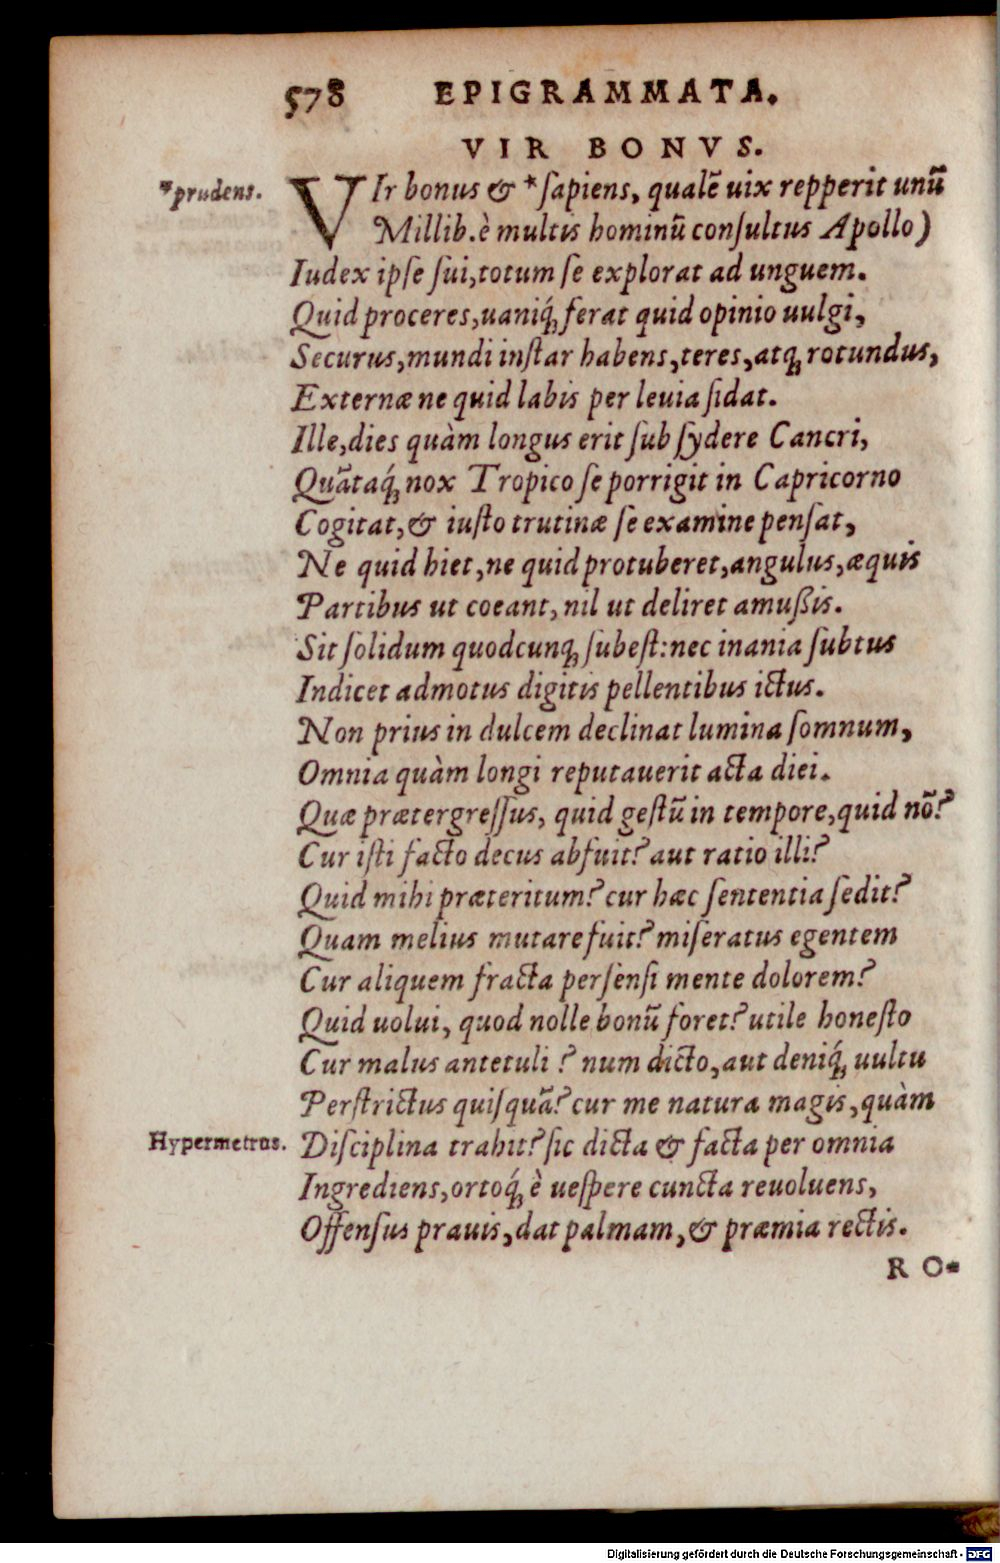 578 EPIGRAMMATA.
VIR BONVS.
*prudens. VIr bonus & *ſapiens, qualē uix repperit unū
Millib. è multis hominū conſultus Apollo)
Iudex ipſe ſui, totum ſe explorat ad unguem.
Quid proceres, uaniq́; ferat quid opinio uulgi,
Securus, mundi inſtar habens, teres, atq; rotundus,
Externæ ne quid labis per leuia ſidat.
Ille, dies quàm longus erit ſub ſydere Cancri,
Quātaq́; nox Tropico ſe porrigit in Capricorno
Cogitat, & iuſto trutinæ ſe examine penſat,
Ne quid hiet, ne quid protuberet, angulus, æquis
Partibus ut coeant, nil ut deliret amußis.
Sit ſolidum quodcunq; ſubeſt: nec inania ſubtus
Indicet admotus digitis pellentibus ictus.
Non prius in dulcem declinat lumina ſomnum,
Omnia quàm longi reputauerit acta diei.
Quæ prætergreſſus, quid geſtū in tempore, quid nō?
Cur iſti facto decus abfuit? aut ratio illi?
Quid mihi præteritum? cur hæc ſententia ſedit?
Quam melius mutare fuit? miſeratus egentem
Cur aliquem fracta perſenſi mente dolorem?
Quid uolui, quod nolle bonū foret? utile honeſto
Cur malus antetuli? num dicto, aut deniq́; uultu
Perſtrictus quiſquā? cur me natura magis, quàm
Hypermetrus. Diſciplina trahit? ſic dicta & facta per omnia
Ingrediens, ortoq́; è ueſpere cuncta reuoluens,
Offenſus prauis, dat palmam, & præmia rectis.
RO-
Digitalisierung gefördert durch die Deutsche Forschungsgemeinschaft - DFG